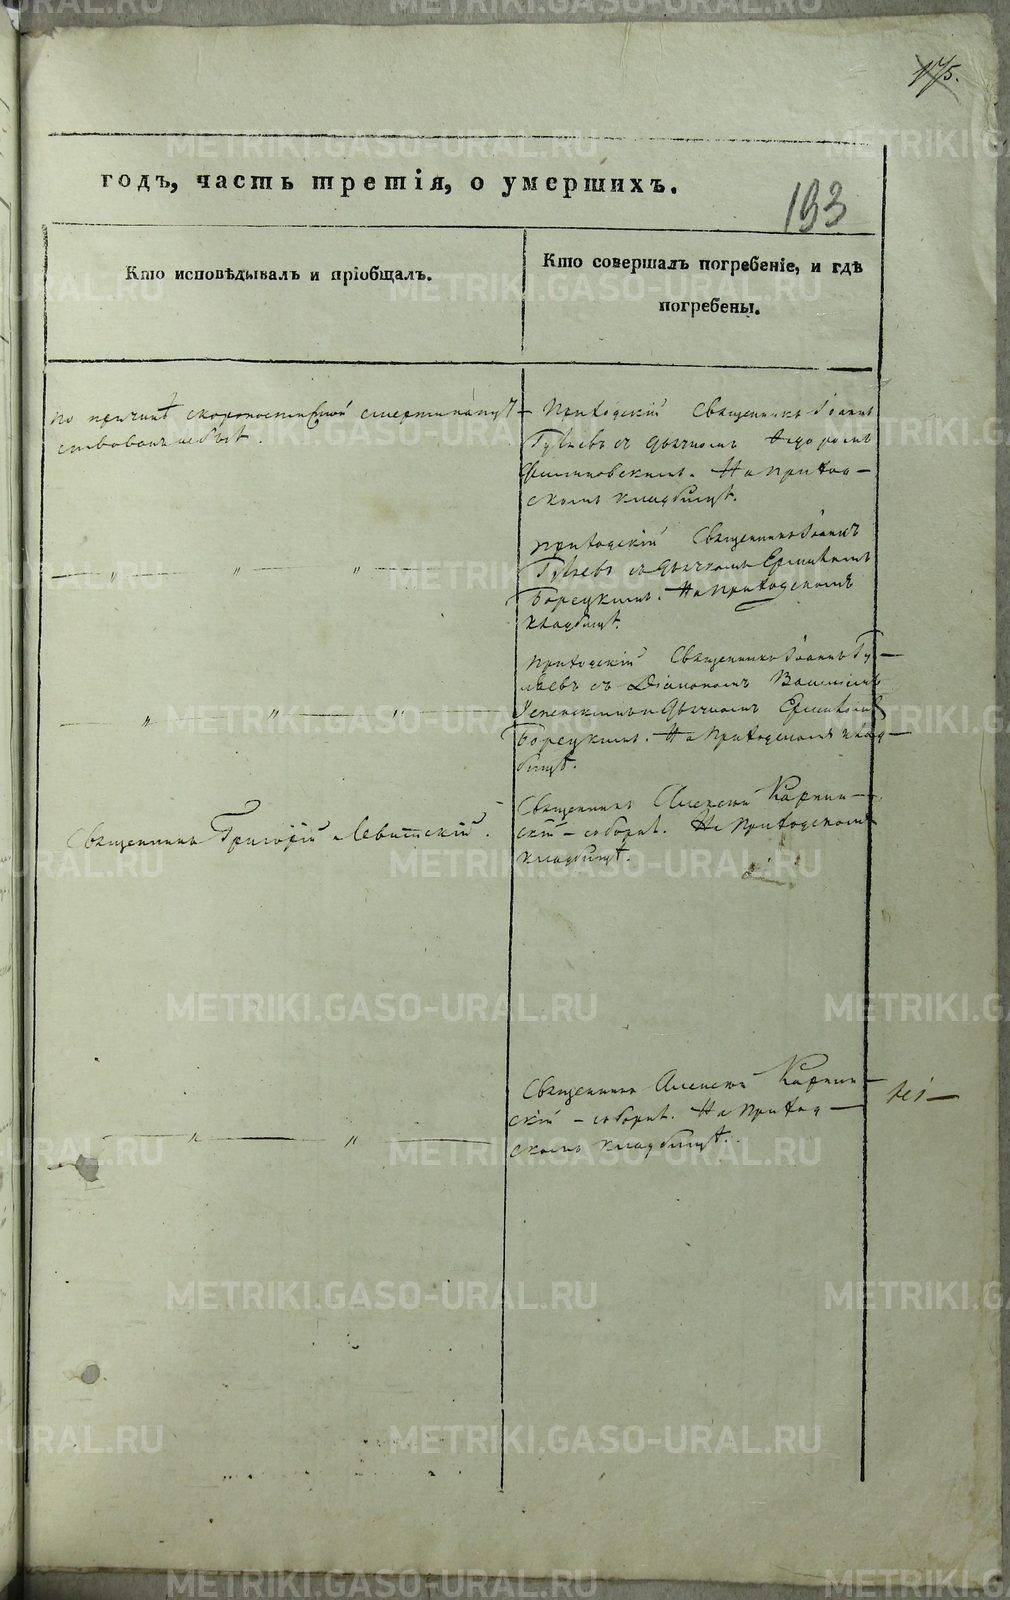 175.
годъ, часть третія, о умершихъ.
193
Кто исповѣдывалъ и пріобщалъ.
Кто совершалъ погребеніе, и гдѣ
погребены.
По причинѣ скоропостижной смерти напут-
ствованъ не былъ.
Приходскій Священникъ Іоаннъ
Гуляевъ съ дьячкомъ Ѳедоромъ
На приход-
скомъ кладбищѣ.
— " — " — " —
Приходскій Священникъ Іоаннъ
Гуляевъ съ дьячкомъ
Борецкимъ. На Приходскомъ
кладбищѣ.
— " — " — " —
Приходскій Священникъ Іоаннъ Гу-
ляевъ съ Діакономъ Василіемъ
Успенскимъ и дьячкомъ
Борецкимъ. На Приходскомъ клад-
бищѣ.
Священникъ Григорій Левитскій.
Священникъ Алексій Карпин-
скій – соборнѣ. На Приходскомъ
кладбищѣ.
— " — " —
Священникъ Алексій Карпин-
скій – соборнѣ. На Приход-
скомъ кладбищѣ.
METRIKI.GASO-URAL.RU